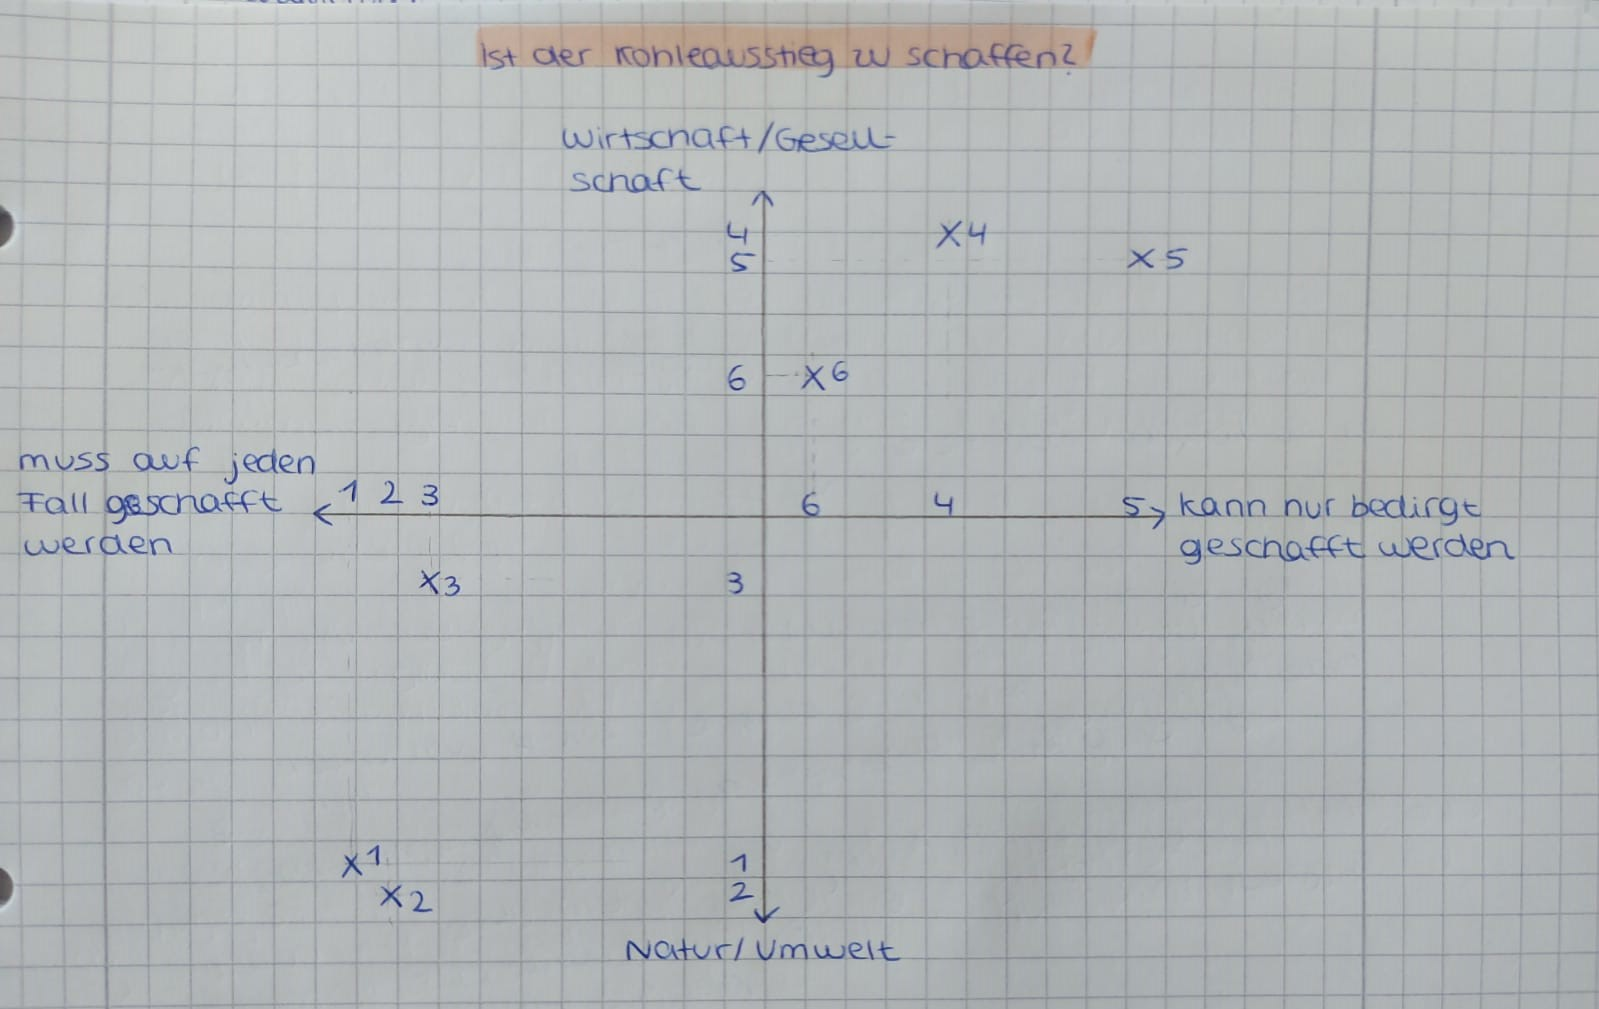 Ist der Kohleausstieg zu schaffen?
Wirtschaft/Gesell-
schaft
4
X4
5
X5
6
X6
muss auf jeden
Fall geschafft
werden
1 2 3
6
4
5
kann nur bedirgt
geschafft werden
X3
3
X1
1
X2
2
Natur/Umwelt